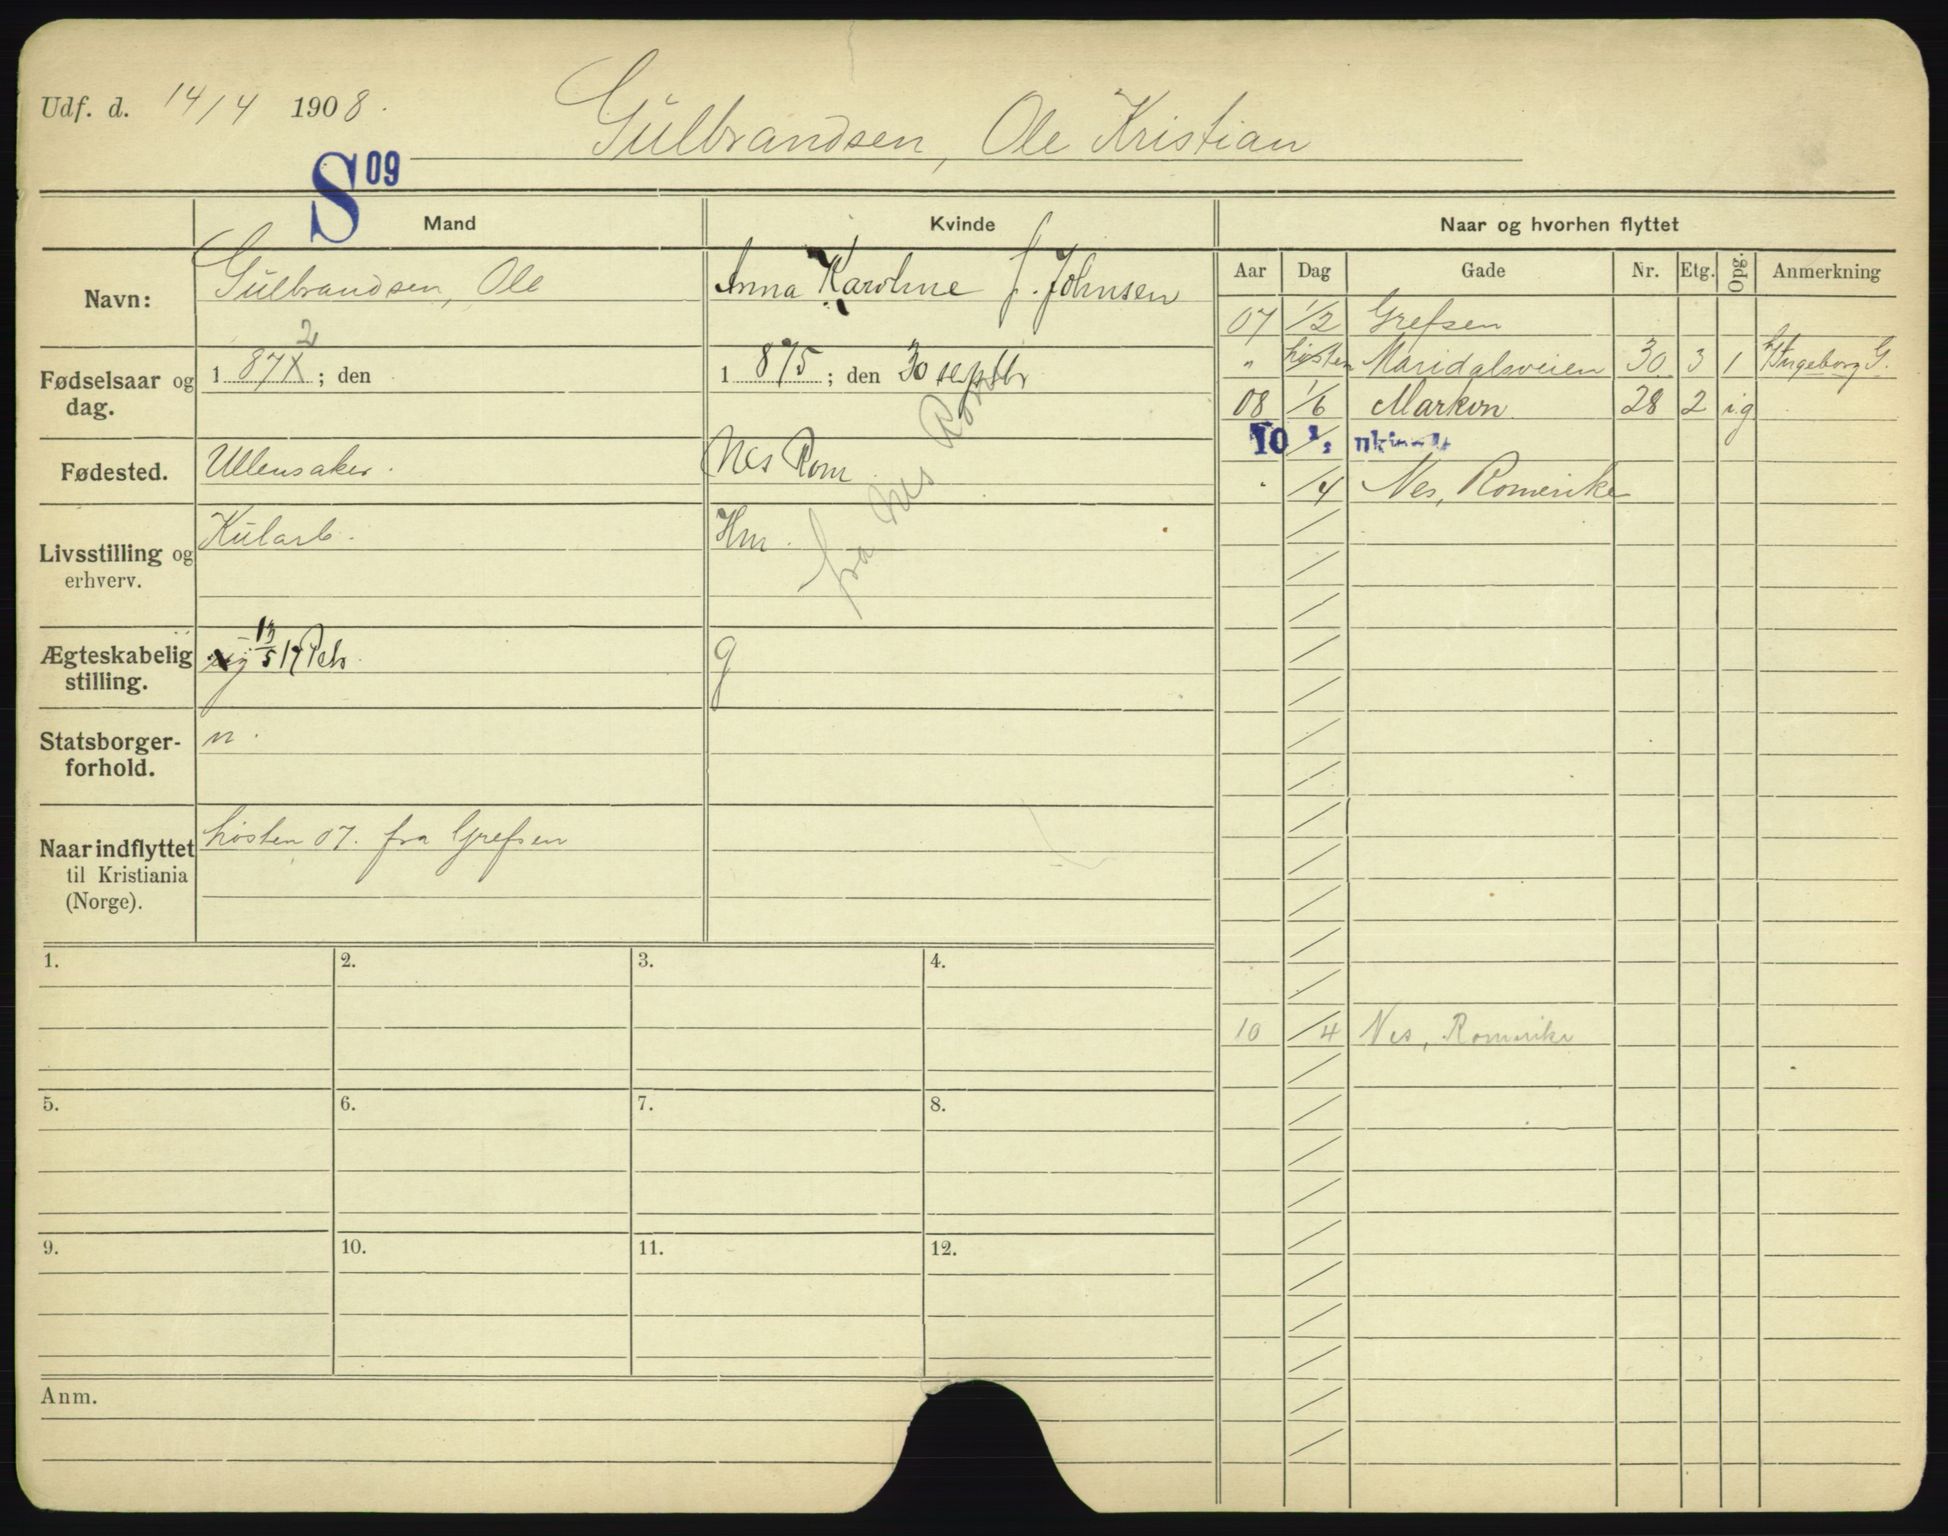 Udf. d. 14/4 1908.
Gulbrandsen, Ole Kristian
S 09
Mand Kvinde Naar og hvorhen flyttet
Aar Dag Gade Nr. Etg. Opg. Anmerkning
Navn: Gulbrandsen, Ole Anna Karoline f. Johnsen
07 1/2 Grefsen
" høsten Maridalsveien 30 3 1 Ingeborg G.
Fødselsaar og dag. 1 87 2 ; den 1 875 ; den 30 septbr
08 1/6 Markvn 28 2 ig
10
Fødested. Ullensaker. Nes Rom
fra Nes Rom
" /4 Nes, Romerike
Livsstilling og erhverv. Kularb. Hm.
Ægteskabelig stilling. 13/5 g
Statsborgerforhold. n.
Naar indflyttet til Kristiania (Norge). høsten 07. fra Grefsen
1. 2. 3. 4.
10 /4 Nes, Romerike
5. 6. 7. 8.
9. 10. 11. 12.
Anm.